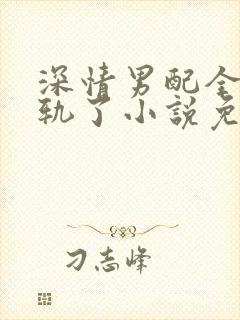 深情男配全
轨了小説免
刁志峰